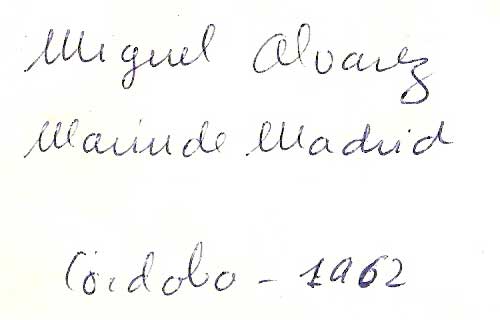 Miguel Alvarez
Marin de Madrid
Córdoba - 1962